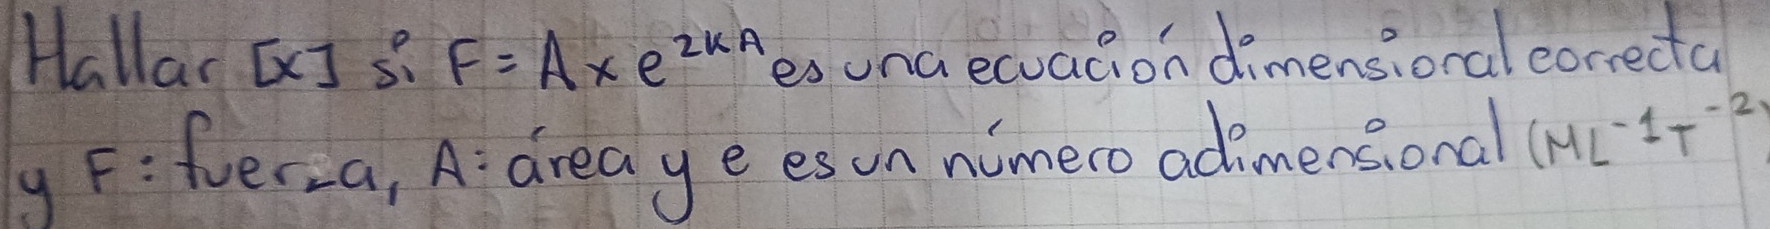 Hallar [x] si F = A x e^{2KA} es una ecuación dimensional correcta
y F: fuerza, A: área y e es un número adimensional (ML^{-1}T^{-2})